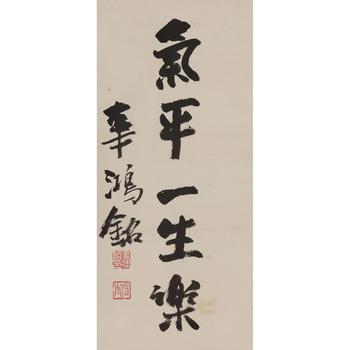 氣平一生樂
辜鴻銘